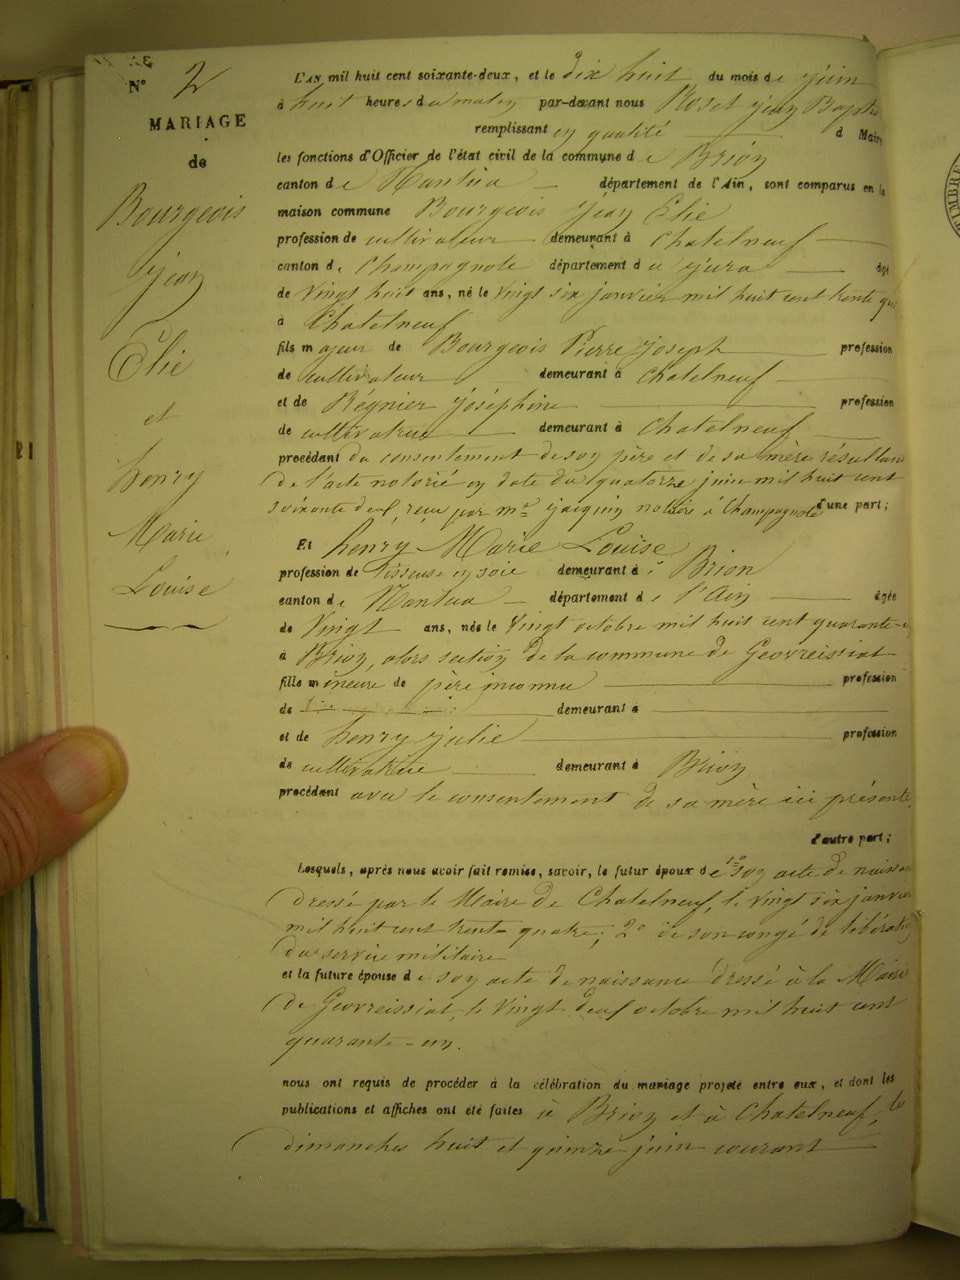 N° 2
MARIAGE
de
Bourgeois
Jean
Élie
et
henry
Marie
Louise
L'AN mil huit cent soixante-deux, et le dix huit du mois de juin
à huit heures du matin par-devant nous Rosset jean Baptis
remplissant en qualité d Maire
les fonctions d'Officier de l'état civil de la commune de Brion
canton de Nantua département de l'Ain, sont comparus en la
maison commune Bourgeois Jean Elie
profession de cultivateur demeurant à Chatelneuf
canton de Champagnole département du jura âgé
de Vingt huit ans, né le Vingt six janvier mil huit cent trente qu
à Chatelneuf
fils majeur de Bourgeois Pierre joseph profession
de cultivateur demeurant à Chatelneuf
et de Régnier Joséphine profession
de cultivatrice demeurant à Chatelneuf
procédant du consentement de son père et de sa mère résultant
de l'acte notarié en date du quatorze juin mil huit cent
soixante deux, reçu par me jacquin notaire à Champagnole d'une part;
Et henry Marie Louise
profession de tisseuse en soie demeurant à Brion
canton de Nantua département de l'Ain âgée
de Vingt ans, née le Vingt octobre mil huit cent quarante-
à Brion, alors section de la commune de Geovreissiat
fille mineure de père inconnu profession
de demeurant à
et de henry julie profession
de cultivatrice demeurant à Brion
procédant avec le consentement de sa mère ici présente
d'autre part;
Lesquels, après nous avoir fait remise, savoir, le futur époux de 1° son acte de naissan
dressé par le Maire de Chatelneuf, le vingt six janvier
mil huit cent trente quatre; 2° de son congé de libération
du service militaire
et la future épouse de son acte de naissance dressé à la Mairie
de Geovreissiat, le Vingt deux octobre mil huit cent
quarante-un.
nous ont requis de procéder à la célébration du mariage projeté entre eux, et dont les
publications et affiches ont été faites à Brion et à Chatelneuf, les
dimanches huit et quinze juin courant
TIMBRE